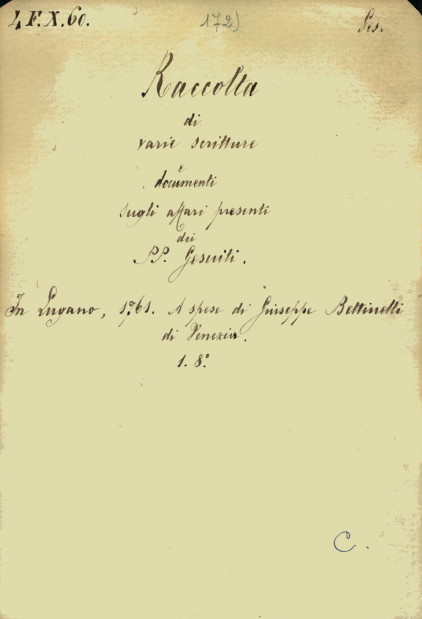 4, F. X. 60.
172)
Ges.
Raccolta
di
varie scritture
e
documenti
sugli affari presenti
dei
PP. Gesuiti.
In Lugano, 1761. A spese di Giuseppe Bettinelli
di Venezia.
1. 8°
C.